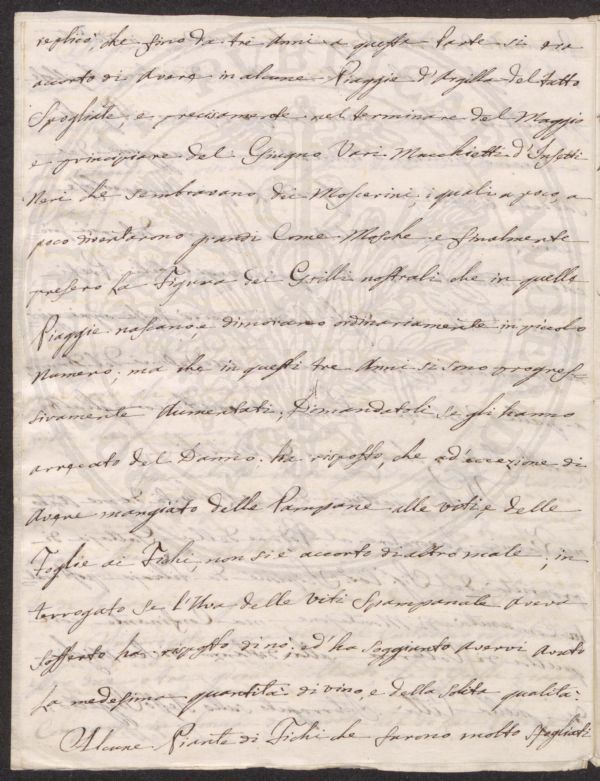 replicò, che fino da tre Anni a questa Parte si era
accorto di Avere in alcune Piaggie d'Argilla del tutto
Spogliate, e precisamente nel terminare del Maggio
e principiare del Giugno Vari Macchietti d'Insetti
Neri che sembravano dei Moscerini i quali a poco, a
poco diventarono grandi Come Mosche e finalmente
presero La Figura dei Grilli nostrali che in quelle
Piaggie nascano, e dimorano ordinariamente in piccolo
Numero; ma che in questi tre Anni si sono progres-
sivamente Aumentati; Domandatoli se gli hanno
arrecato del Danno ha risposto, che ad'eccezione di
Avere mangiato delle Pampane alle viti, e delle
Foglie ai Fichi non si è accorto di altro male, in
terrogato se l'Uva delle viti Spampanate aveva
Sofferto ha risposto di nò; ed'ha Soggiunto Avervi Avuto
La medesima quantità di vino, e della Solita qualità.
Alcune Piante di Fichi che furono molto Spogliati